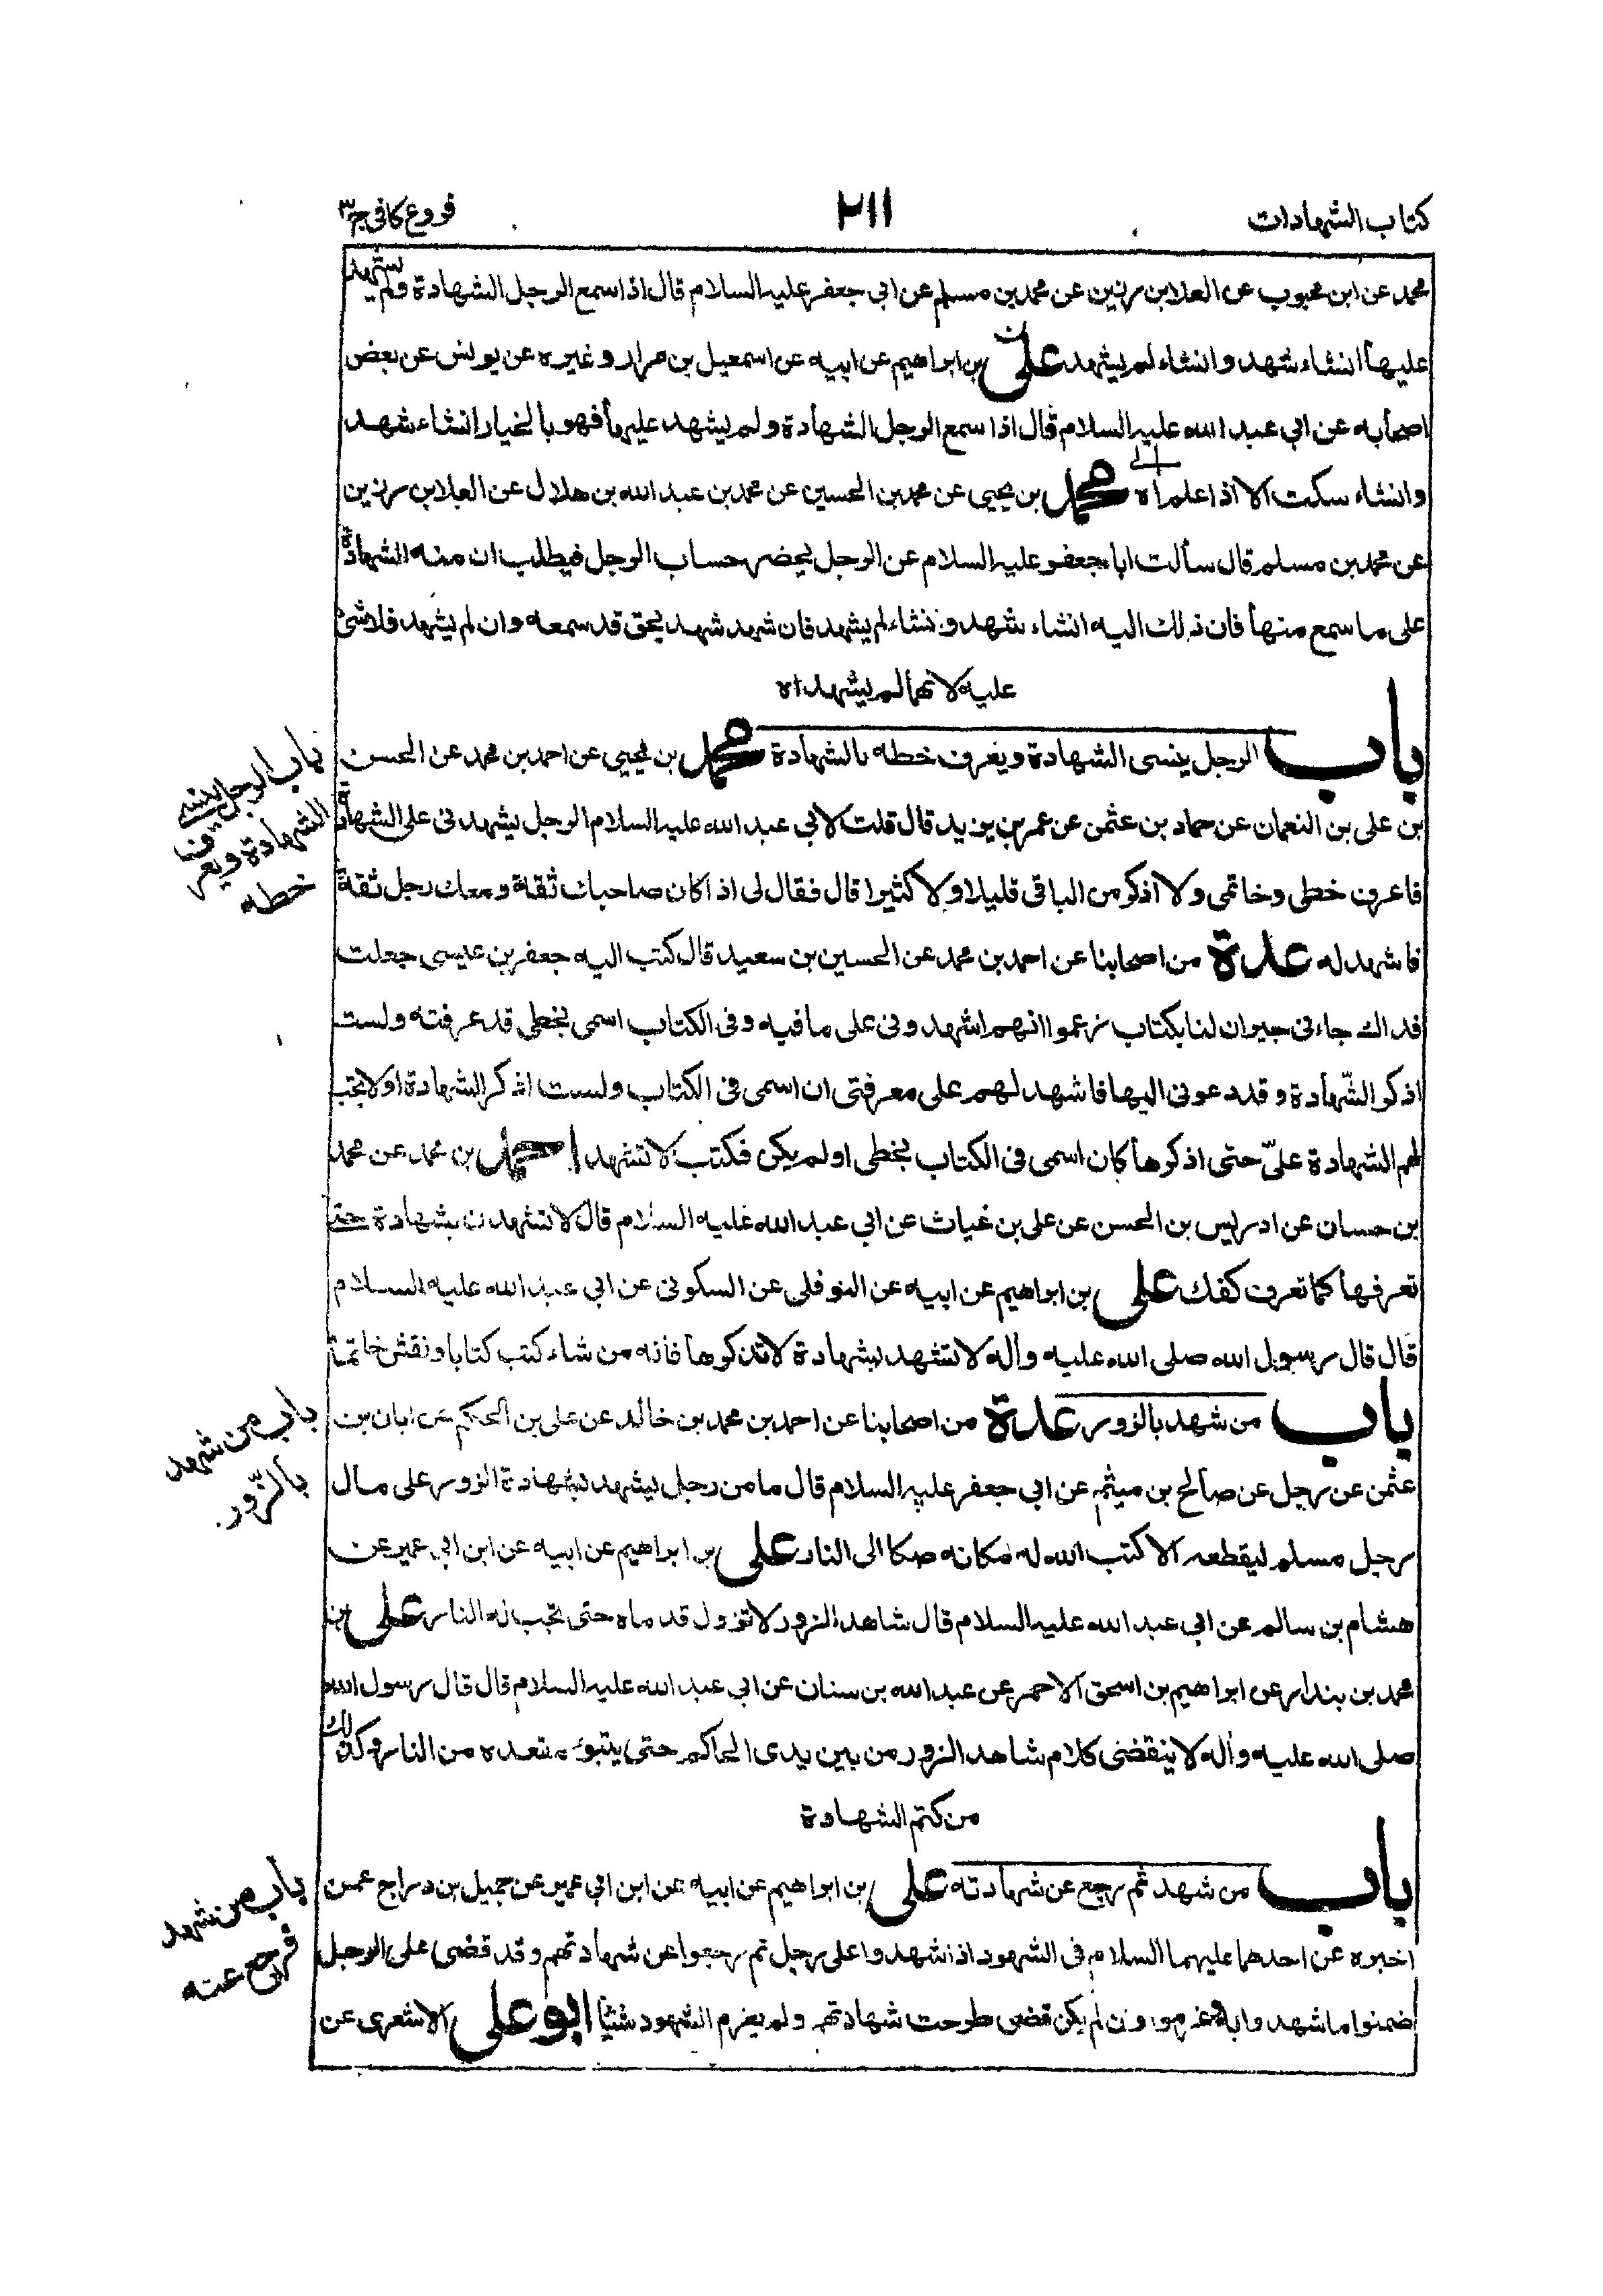 كتاب الشهادات
٢١١
فروع كافى ج٣
محمد عن ابن محبوب عن العلا بن رزين عن محمد بن مسلم عن ابي جعفر عليه السلام قال اذا سمع الرجل الشهادة ولم يستشهد
عليها انشاء شهد وانشاء لم يشهد على بن ابراهيم عن ابيه عن اسمعيل بن مرار وغيره عن يونس عن بعض
اصحابه عن ابي عبد الله عليه السلام قال اذا سمع الرجل الشهادة ولم يشهد عليها فهو بالخيار انشاء شهد
وانشاء سكت الا اذا علم محمد بن يحيى عن محمد بن الحسين عن محمد بن عبد الله بن هلال عن العلا بن رزين
عن محمد بن مسلم قال سألت ابا جعفر عليه السلام عن الرجل يحضر حساب الرجل فيطلبان منه الشهادة
على ما سمع منها فان ذلك اليه انشاء شهد وانشاء لم يشهد فان شهد شهد بحق قد سمعه وان لم يشهد فلا شئ
عليه لانهما لم يشهداه
باب الرجل ينسى الشهادة ويعرف خطه بالشهادة محمد بن يحيى عن احمد بن محمد عن الحسن
بن على بن النعمان عن حماد بن عثمن عن عمر بن يزيد قال قلت لابي عبد الله عليه السلام الرجل يشهدنى على الشهادة
فاعرف خطى وخاتمى ولا اذكر من الباقى قليلا ولا كثيرا قال فقال لى اذا كان صاحبك ثقة ومعك رجل ثقة
فاشهد له عدة من اصحابنا عن احمد بن محمد عن الحسين بن سعيد قال كتب اليه جعفر بن عيسى جعلت
فداك جاءنى جيران لنا بكتاب زعموا انهم اشهدونى على ما فيه وفى الكتاب اسمى بخطى قد عرفته ولست
اذكر الشّهادة وقد دعونى اليها فاشهد لهم على معرفتى ان اسمى فى الكتاب ولست اذكر الشهادة اولا تجب
لهم الشهادة علىّ حتى اذكرها كان اسمى فى الكتاب بخطى او لم يكن فكتب لا تشهد احمد بن محمد عن محمد
بن حسان عن ادريس بن الحسن عن على بن غياث عن ابي عبد الله عليه السلام قال لا تشهدن بشهادة حتى
تعرفها كما تعرف كفك على بن ابراهيم عن ابيه عن النوفلى عن السكونى عن ابي عبد الله عليه السلام
قال قال رسول الله صلى الله عليه وآله لا تشهد بشهادة لا تذكرها فانه من شاء كتب كتابا ونقش خاتما
باب من شهد بالزور عدة من اصحابنا عن احمد بن محمد بن خالد عن على بن الحكم عن ابان بن
عثمن عن رجل عن صالح بن ميثم عن ابي جعفر عليه السلام قال ما من رجل يشهد بشهادة الزور على مال
رجل مسلم ليقطعه الا كتب الله له مكانه صكا الى النار على بن ابراهيم عن ابيه عن ابن ابي عمير عن
هشام بن سالم عن ابي عبد الله عليه السلام قال شاهد الزور لا تزول قدماه حتى تجب له النار على بن
محمد بن بندار عن ابراهيم بن اسحق الاحمر عن عبد الله بن سنان عن ابي عبد الله عليه السلام قال قال رسول الله
صلى الله عليه وآله لا ينقضى كلام شاهد الزور من بين يدى الحاكم حتى يتبوء مقعده من النار وكذلك
من كتم الشهادة
باب من شهد ثم رجع عن شهادته على بن ابراهيم عن ابيه عن ابن ابي عمير عن جميل بن دراج عمن
اخبره عن احدهما عليهما السلام فى الشهود اذا شهدوا على رجل ثم رجعوا عن شهادتهم وقد قضى على الرجل
ضمنوا ما شهدوا به وغرموا وان لم يكن قضى طرحت شهادتهم ولم يغرم الشهود شئيا ابو على الاشعرى عن
باب الرجل ينسى
الشهادة ويعرف
خطه
باب من شهد
بالزّور
باب من شهد
فرجع عنه